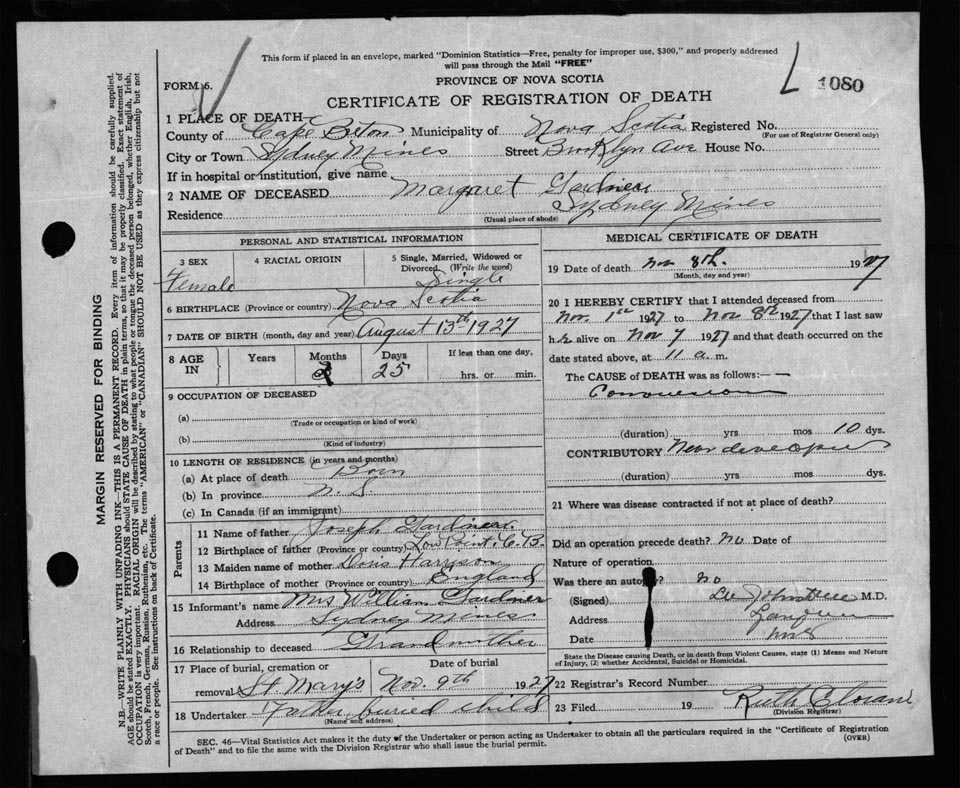 This form if placed in an envelope, marked "Dominion Statistics—Free, penalty for improper use, $300," and properly addressed
will pass through the Mail "FREE"
FORM 6.
PROVINCE OF NOVA SCOTIA
L 1080
CERTIFICATE OF REGISTRATION OF DEATH
1 PLACE OF DEATH—
County of Cape Breton Municipality of Nova Scotia Registered No.
(For use of Registrar General only)
City or Town Sydney Mines Street Brooklyn Ave House No.
If in hospital or institution, give name
2 NAME OF DECEASED Margaret Gardiner
Residence Sydney Mines
(Usual place of abode)
PERSONAL AND STATISTICAL INFORMATION
3 SEX 4 RACIAL ORIGIN 5 Single, Married, Widowed or
Divorced. (Write the word)
Female Single
6 BIRTHPLACE (Province or country) Nova Scotia
7 DATE OF BIRTH (month, day and year) August 13th 1927
8 AGE IN Years Months Days If less than one day,
2 25 hrs. or min.
9 OCCUPATION OF DECEASED
(a)
(Trade or occupation or kind of work)
(b)
(Kind of industry)
10 LENGTH OF RESIDENCE (in years and months)
(a) At place of death Born
(b) In province N.S.
(c) In Canada (if an immigrant)
Parents
11 Name of father Joseph Gardiner
12 Birthplace of father (Province or country) Low Point, C.B.
13 Maiden name of mother Doris Harrison
14 Birthplace of mother (Province or country) England
15 Informant's name Mrs William Gardner
Address Sydney Mines
16 Relationship to deceased Grandmother
17 Place of burial, cremation or Date of burial
removal St. Mary's Nov. 9th 1927
18 Undertaker Father buried child
(Name and address)
MEDICAL CERTIFICATE OF DEATH
19 Date of death Nov 8th. 1927
(Month, day and year)
20 I HEREBY CERTIFY that I attended deceased from
Nov. 1st 1927 to Nov 8th 1927 that I last saw
h alive on Nov 7 1927 and that death occurred on the
date stated above, at 11 a.m.
The CAUSE of DEATH was as follows:—
Convulsion
(duration) yrs mos 10 dys.
CONTRIBUTORY
(duration) yrs mos dys.
21 Where was disease contracted if not at place of death?
Did an operation precede death? no Date of
Nature of operation
Was there an autopsy? no
(Signed) M.D.
Address
Date
State the Disease causing Death, or in death from Violent Causes, state (1) Means and Nature
of Injury, (2) whether Accidental, Suicidal or Homicidal.
22 Registrar's Record Number
23 Filed 19 Ruth
(Division Registrar)
SEC. 46—Vital Statistics Act makes it the duty of the Undertaker or person acting as Undertaker to obtain all the particulars required in the "Certificate of Registration
of Death" and to file the same with the Division Registrar who shall issue the burial permit.
(OVER)
MARGIN RESERVED FOR BINDING
N.B.—WRITE PLAINLY WITH UNFADING INK—THIS IS A PERMANENT RECORD. Every item of information should be carefully supplied.
AGE should be stated EXACTLY. PHYSICIANS should STATE CAUSE OF DEATH in plain terms, so that it may be properly classified. Exact statement of
OCCUPATION is very important. RACIAL ORIGIN will be described by stating to what people or tongue the deceased person belonged, whether English, Irish,
Scotch, French, German, Russian, Ruthenian, etc. The terms "AMERICAN" or "CANADIAN" SHOULD NOT BE USED as they express citizenship but not
a race or people. See instructions on back of Certificate.